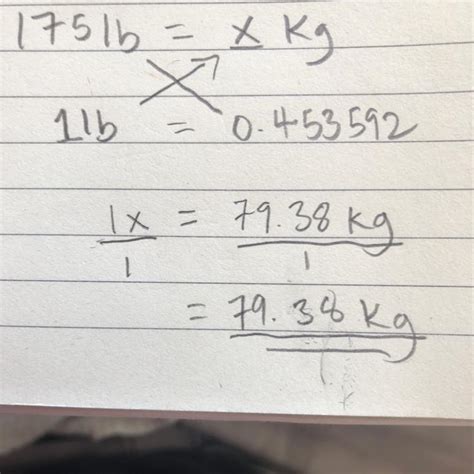 175lb = x Kg
1lb = 0.453592
1x = 79.38 kg
1 1
= 79.38 Kg